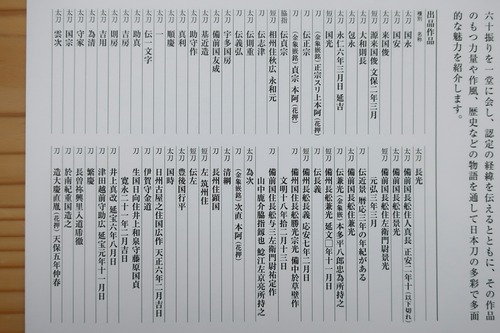 六十振りを一堂に会し、認定の経緯を伝えるとともに、その作品
のもつ力量や作風、歴史などの物語を通して日本刀の多彩で多面
的な魅力を紹介します。
出品作品
種別 名称
太刀 国永
太刀 国安
太刀 来国俊
短刀 源来国俊 文保二年三月
太刀 大和則長
太刀 包永
太刀 永仁六年三月日 延吉
短刀 国光
刀 (金象嵌銘)正宗スリ上本阿(花押)
刀 伝正宗
刀 (金象嵌銘)貞宗 本阿(花押)
脇指 伝貞宗
短刀 相州住秋広 永和元
刀 伝志津
刀 伝則重
刀 伝義弘
太刀 宇多国房
太刀 備前国友成
太刀 基近造
太刀 助守作
太刀 真利
太刀 順慶
太刀 一
太刀 伝一文字
太刀 助真
太刀 吉房
太刀 則房
太刀 吉用
太刀 為清
太刀 守家
太刀 国宗
太刀 雲次
太刀 長光
太刀 備前国長船住人真長 正安二年十(以下切れ)
太刀 備前国長船住左衛門尉景光
太刀 元弘三年三月
太刀 備前国長船住景光
刀 伝近景 暦応三年の年紀がある
刀 伝兼光(金象嵌銘)本多平八郎忠為所持之
太刀 備前国長船兼光 延文□年十一月日
刀 伝長義
太刀 備州長船長義 応安七年二月日
刀 備州国住長船勝光宗光 備中於草壁作
文明十八年十二月十三日
刀 備前国住長船与三左衛門尉祐定作
山中鹿介脇指縁也 鯰江左京亮所持之
太刀 為次
刀 (金象嵌銘)次直 本阿(花押)
太刀 清綱
刀 長州住顕国
短刀 左 筑州住
刀 伝左
太刀 国時
太刀 豊後国行平
刀 伊賀守金道
刀 日州古屋之住国広作 天正六年二月吉日
刀 生国日向住井上和泉守藤原国貞
寛永二十一年二月吉日
刀 井上真改 延宝六年八月日
刀 津田越前守助広 延宝元年十一月日
刀 繁慶
刀 長曽祢興里入道乕徹
刀 於南紀重国造之
刀 造大慶直胤(花押)天保五年仲春